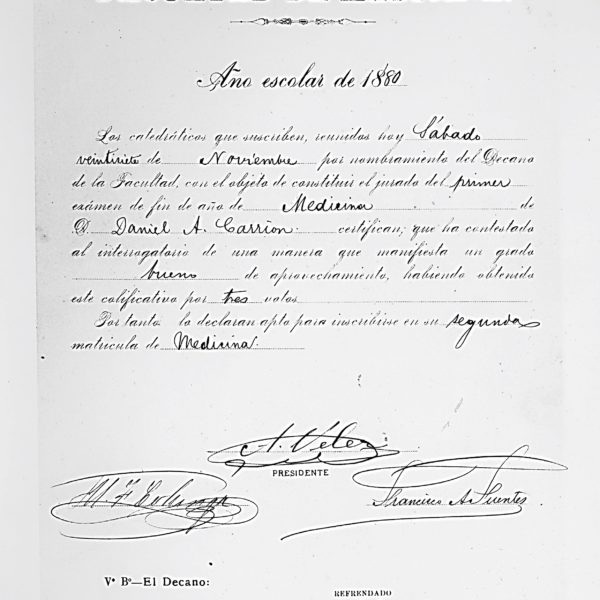 Año escolar de 1880
Los catedráticos que suscriben, reunidos hoy Sábado
veintisiete de Noviembre por nombramiento del Decano
de la Facultad, con el objeto de constituir el jurado del primer
exámen de fin de año de Medicina de
D. Daniel A. Carrion certifican; que ha contestado
al interrogatorio de una manera que manifiesta un grado
bueno de aprovechamiento, habiendo obtenido
este calificativo por tres votos
Por tanto: lo declaran apto para inscribirse en su segunda
matrícula de Medicina.
A. Vélez
PRESIDENTE
Francisco A. Fuentes
Vº Bº—El Decano:
REFRENDADO